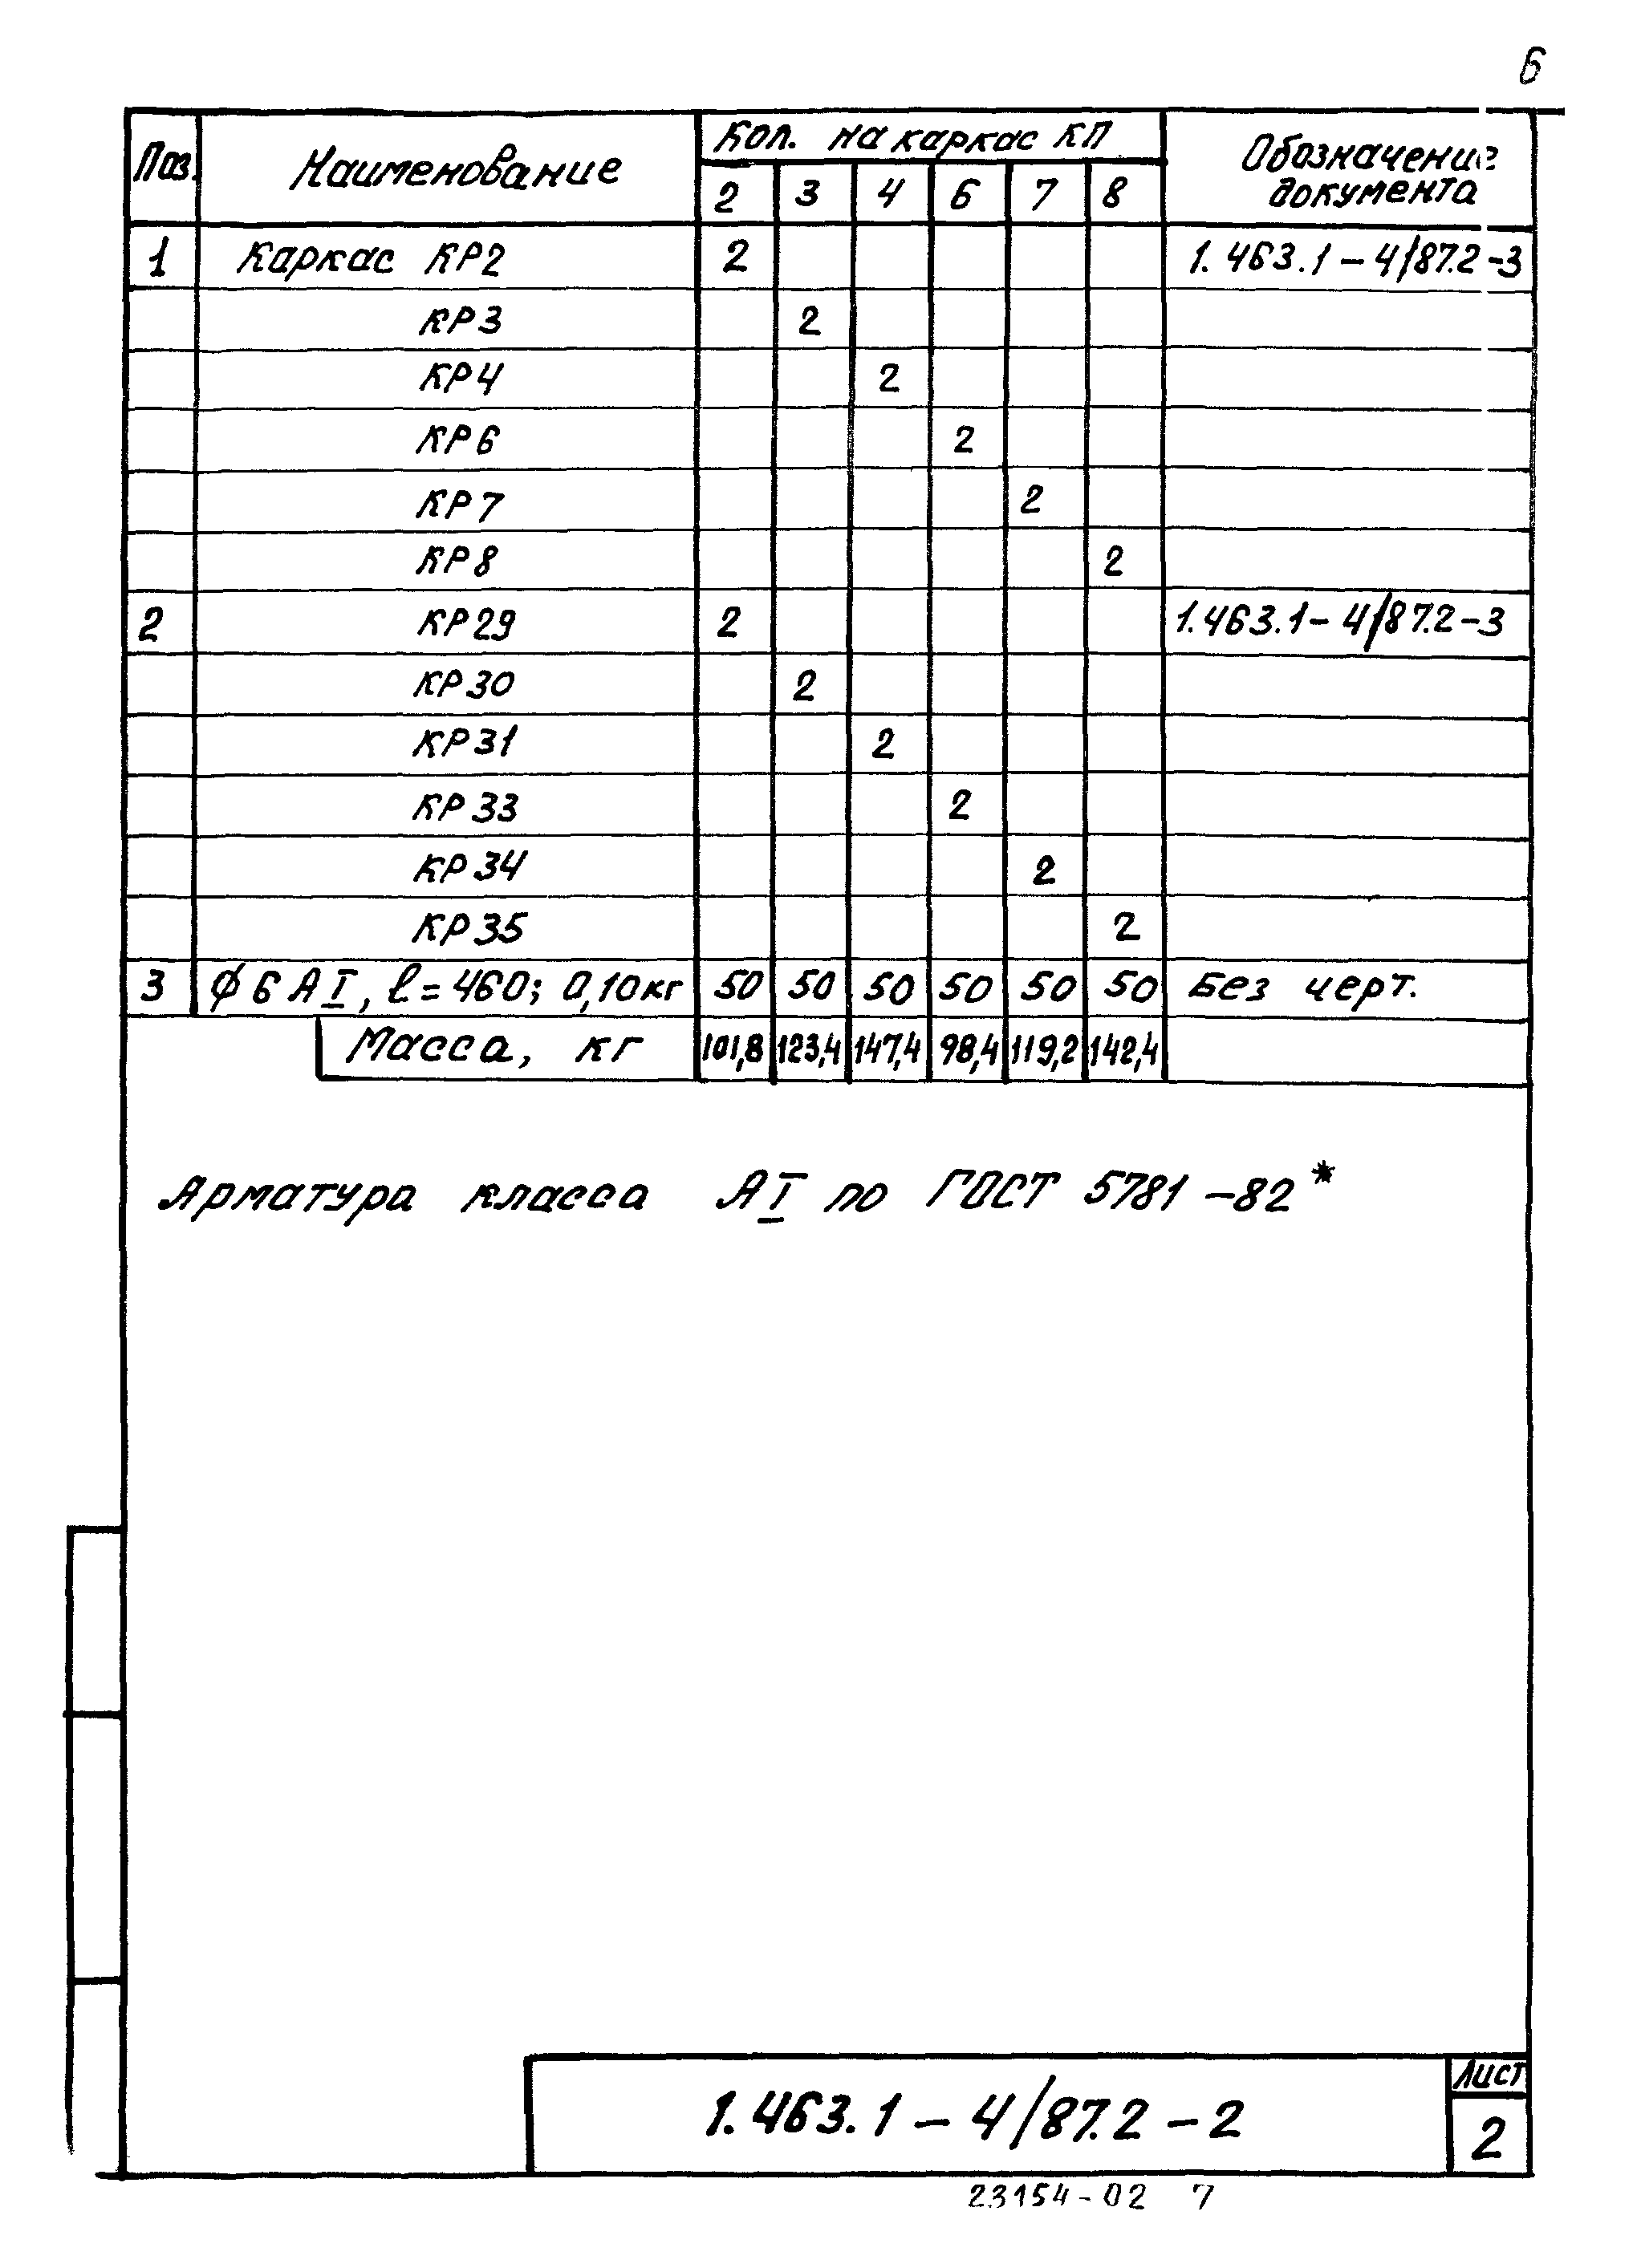 6
Поз. Наименование Кол. на каркас КП Обозначение документа
2 3 4 6 7 8
1 Каркас КР2 2 1.463.1-4/87.2-3
КР3 2
КР4 2
КР6 2
КР7 2
КР8 2
2 КР29 2 1.463.1-4/87.2-3
КР30 2
КР31 2
КР33 2
КР34 2
КР35 2
3 ϕ6АI, ℓ=460; 0,10кг 50 50 50 50 50 50 Без черт.
Масса, кг 101,8 123,4 147,4 98,4 119,2 142,4
Арматура класса АI по ГОСТ 5781-82*
1.463.1-4/87.2-2
Лист
2
23154-02 7